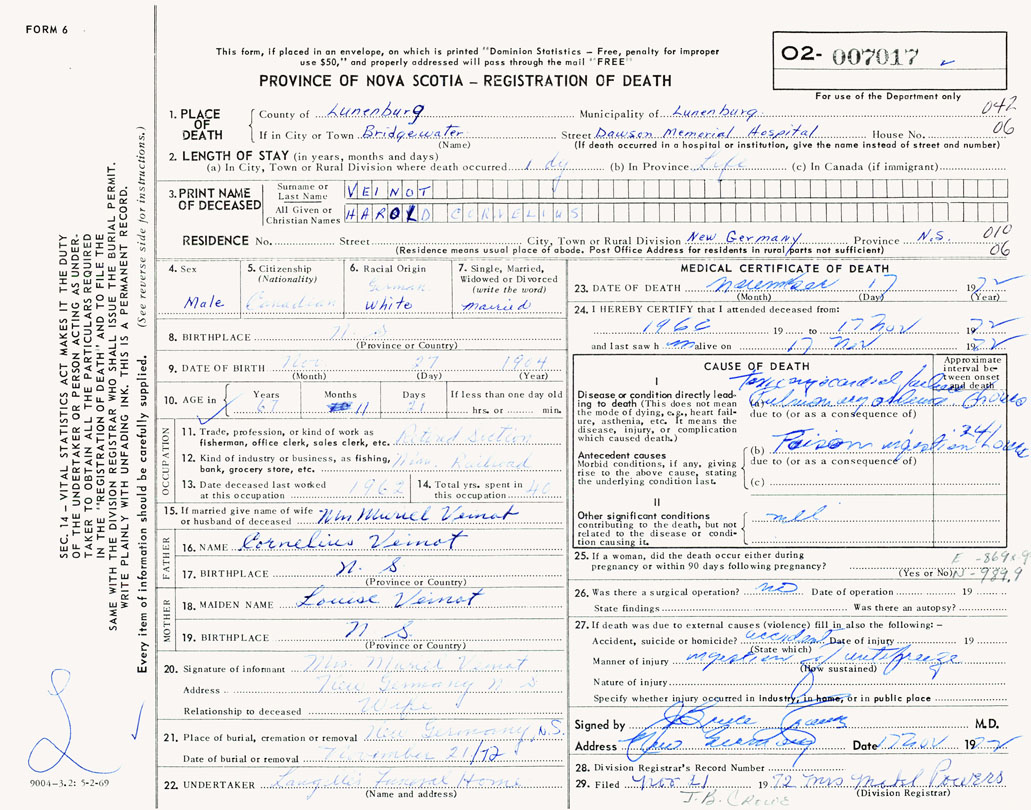 FORM 6
This form, if placed in an envelope, on which is printed "Dominion Statistics – Free, penalty for improper
use $50," and properly addressed will pass through the mail "FREE"
PROVINCE OF NOVA SCOTIA – REGISTRATION OF DEATH
O2- 007017
For use of the Department only
1. PLACE OF DEATH
County of Lunenburg Municipality of Lunenburg 042
If in City or Town Bridgewater Street Dawson Memorial Hospital House No. 06
(Name) (If death occurred in a hospital or institution, give the name instead of street and number)
2. LENGTH OF STAY (in years, months and days)
(a) In City, Town or Rural Division where death occurred 1 dy (b) In Province Life (c) In Canada (if immigrant)
3. PRINT NAME OF DECEASED
Surname or Last Name VEINOT
All Given or Christian Names HAROLD CORVELIUS
RESIDENCE No. Street City, Town or Rural Division New Germany Province N.S. 010
(Residence means usual place of abode. Post Office Address for residents in rural parts not sufficient) 06
4. Sex
Male
5. Citizenship
(Nationality)
Canadian
6. Racial Origin
German
White
7. Single, Married,
Widowed or Divorced
(write the word)
married
8. BIRTHPLACE N. S
(Province or Country)
9. DATE OF BIRTH Nov 27 1904
(Month) (Day) (Year)
10. AGE in Years Months Days If less than one day old
67 11 21 hrs. or min.
OCCUPATION
11. Trade, profession, or kind of work as
fisherman, office clerk, sales clerk, etc. Retired Section
12. Kind of industry or business, as fishing,
bank, grocery store, etc. Railroad
13. Date deceased last worked
at this occupation 1962
14. Total yrs. spent in
this occupation 40
15. If married give name of wife
or husband of deceased Muriel Veinot
FATHER
16. NAME Cornelius Veinot
17. BIRTHPLACE N. S
(Province or Country)
MOTHER
18. MAIDEN NAME Louise Veinot
19. BIRTHPLACE N S
(Province or Country)
20. Signature of informant Mrs. Muriel Veinot
Address New Germany N S
Relationship to deceased Wife
21. Place of burial, cremation or removal New Germany, N.S.
Date of burial or removal November 21/72
22. UNDERTAKER Langille's Funeral Home
(Name and address)
MEDICAL CERTIFICATE OF DEATH
23. DATE OF DEATH November 17 1972
(Month) (Day) (Year)
24. I HEREBY CERTIFY that I attended deceased from:
1966 19 to 17 Nov 1972
and last saw h m alive on 17 Nov 1972
CAUSE OF DEATH
Approximate interval between onset and death
I
Disease or condition directly leading to death (This does not mean
the mode of dying, e.g., heart failure, asthenia, etc. It means the
disease, injury, or complication
which caused death.)
Toxic myocardial failure
Pulmonary oedema
due to (or as a consequence of)
Antecedent causes
Morbid conditions, if any, giving
rise to the above cause, stating
the underlying condition last.
(b) Poison ingestion 24 hours
due to (or as a consequence of)
(c)
II
Other significant conditions
contributing to the death, but not
related to the disease or condition causing it.
nil
25. If a woman, did the death occur either during
pregnancy or within 90 days following pregnancy?
(Yes or No)
E -869.9
N-989.9
26. Was there a surgical operation? no Date of operation 19
State findings Was there an autopsy?
27. If death was due to external causes (violence) fill in also the following: –
Accident, suicide or homicide? accident Date of injury 19
(State which)
Manner of injury ingestion of antifreeze
(How sustained)
Nature of injury
Specify whether injury occurred in industry, in home, or in public place
Signed by J Bruce M.D.
Address New Germany Date 17 Nov 1972
28. Division Registrar's Record Number
29. Filed Nov 21 1972 Mrs Mabel Powers
(Division Registrar)
J.B. CROWE
SEC. 14 – VITAL STATISTICS ACT MAKES IT THE DUTY
OF THE UNDERTAKER OR PERSON ACTING AS UNDER-
TAKER TO OBTAIN ALL THE PARTICULARS REQUIRED
IN THE "REGISTRATION OF DEATH" AND TO FILE THE
SAME WITH THE DIVISION REGISTRAR WHO SHALL ISSUE THE BURIAL PERMIT.
WRITE PLAINLY WITH UNFADING INK. THIS IS A PERMANENT RECORD.
Every item of information should be carefully supplied. (See reverse side for instructions.)
9004-3.2: 5-2-69